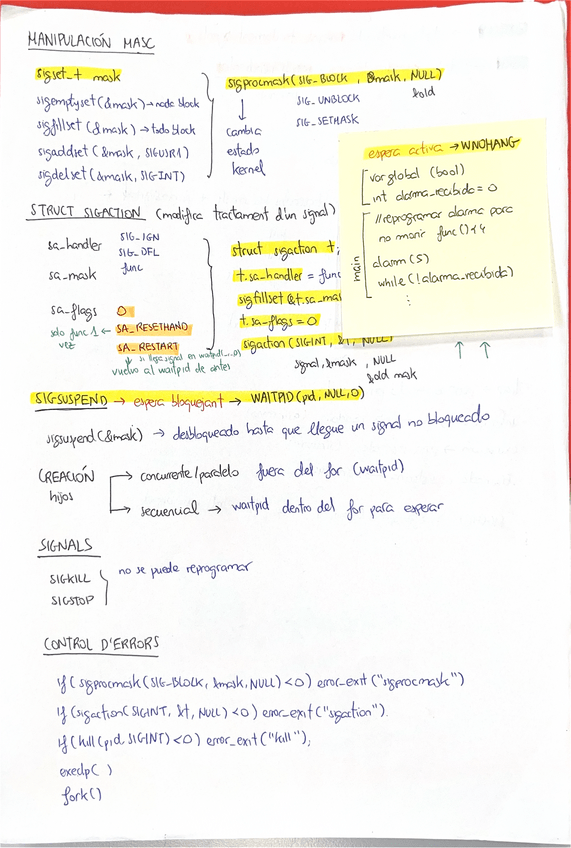 MANIPULACIÓN MASC
sigset_t mask
sigemptyset (&mask) → nada block
sigfillset (&mask) → todo block
sigaddset (&mask, SIGUSR1)
sigdelset (&mask, SIGINT)
sigprocmask (SIG_BLOCK, &mask, NULL)
SIG_UNBLOCK
&old
SIG_SETMASK
↓
cambia
estado
kernel
espera activa → WNOHANG
var global (bool)
int alarma_recibida = 0
main
//reprogramar alarma para
no morir func() 14
alarm (5)
while (!alarma_recibida)
⋮
STRUCT SIGACTION (modifica tractament d'un signal)
sa_handler
SIG_IGN
SIG_DFL
func
sa_mask
sa_flags 0
solo func 1 ← SA_RESETHAND
vez
SA_RESTART
↓ si llega signal en waitpid(...,0)
vuelve al waitpid de antes
struct sigaction t;
t.sa_handler = func
sigfillset (&t.sa_mas
t.sa_flags = 0
sigaction (SIGINT, &t, NULL)
signal, &mask, NULL
&old mask
↑ ↑
SIGSUSPEND → espera bloquejant → WAITPID (pid, NULL, 0)
sigsuspend (&mask) → desbloqueado hasta que llegue un signal no bloqueado
CREACIÓN
hijos
→ concurrente/paralelo fuera del for (waitpid)
→ secuencial → waitpid dentro del for para esperar
SIGNALS
SIGKILL
SIGSTOP
no se puede reprogramar
CONTROL D'ERRORS
if (sigprocmask (SIG_BLOCK, &mask, NULL) <0) error_exit ("sigprocmask")
if (sigaction (SIGINT, &t, NULL) <0) error_exit ("sigaction").
if (kill (pid, SIGINT) <0) error_exit ("kill");
execlp( )
fork()